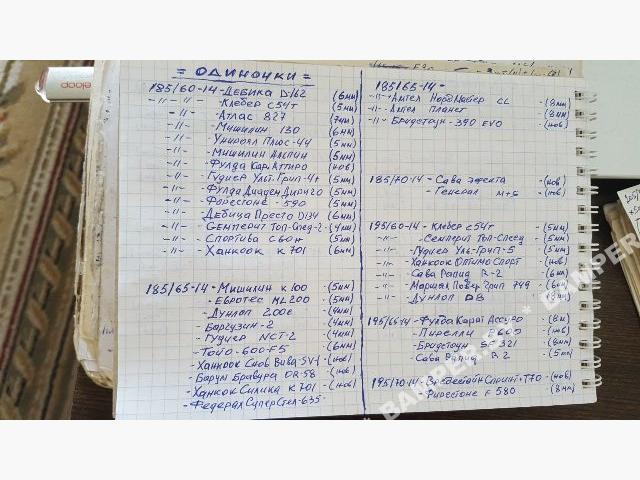 = ОДИНОЧКИ =
185/60-14-ДЕБИКА D-162 (6мм)
-11- -11- -КЛЕБЕР С54Т (5мм)
-11- -АТЛАС 827 (7мм)
-11- -МИШИЛИН 130 (6мм)
-11- -УНИРОЯЛ ПЛЮС-44 (5мм)
-11- -МИШИЛИН АЛЬПИН (5мм)
-11- -ФУЛДА КАРАТ АТТИРО (нов)
-11- -ГУДИЕР УЛЬТ-ГРИП-4+ (5мм)
-11- -ФУЛДА ДИАДЕМ 20 (5мм)
-11- -ФОРЕСТОНЕ-590 (5мм)
-11- -ДЕБИЦА ПРЕСТО D134 (6мм)
-11- -СЕМПЕРИТ ТОП-СПЕД-2 -(4мм)
-11- -СПОРТИВА С60Н (5мм)
-11- -ХАНКООК К701 (6мм)
185/65-14-МИШИЛИН К100 (5мм)
-ЕВРОТЕС ML200 (5мм)
-ДУНЛОП 200Е (4мм)
-БАРГУЗИН-2 (4мм)
-ГУДИЕР NCT-2 (4мм)
-ТОЙО-600-F5 (6мм)
-ХАНКООК СНОВ ВИВА-SV-1 -(нов)
-БАРУМ БРАВУРА OR-58 -(нов)
-ХАНКОК СИЛИКА К701 -(нов)
-ФЕДЕРАЛ СУПЕР СТЕЛ-635
185/65-14-
-11- -АМТЕЛ НОРДМАСТЕР CL -(8мм)
-11- -АМТЕЛ ПЛАНЕТ -(8мм)
-11- -БРИДСТОУН-390 EVO -(нов)
185/70-14-САВА ЭФЕКТА -(нов)
-ГЕНЕРАЛ M+S -(нов)
195/60-14-КЛЕБЕР С54Т -(5мм)
-11- -СЕМПЕРИТ ТОП-СПЕЕД -(5мм)
-11- -ГУДИЕР УЛЬ-ГРИП-5 -(5мм)
-11- -ХАНКООК ОПТИМО СПОРТ -(нов)
-11- -САВА РАПИД R-2 -(6мм)
-11- -МАРШАЛ ПОВЕР ГРИП 749 -(6мм)
-11- -ДУНЛОП D8
195/65-14-ФУЛДА КАРАТ АССУРО -(8м)
-ПИРЕЛЛИ -(нов)
-БРИДСТОУН SF-321 -(8мм)
-САВА РАПИД R2 -(5мм)
195/70-14-ВРЕДЕСТАЙН СПРИНТ+Т70 -(нов)
-ФИРЕСТОНЕ F580 (8мм)
BAMPER